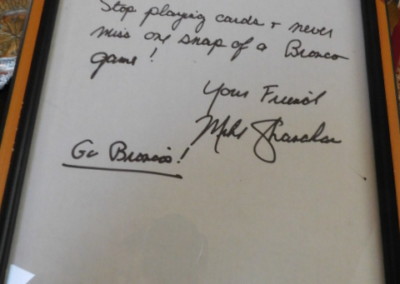 Stop playing cards + never
miss one snap of a Bronco
game!
Your Friend
Mike Shanahan
Go Broncos!